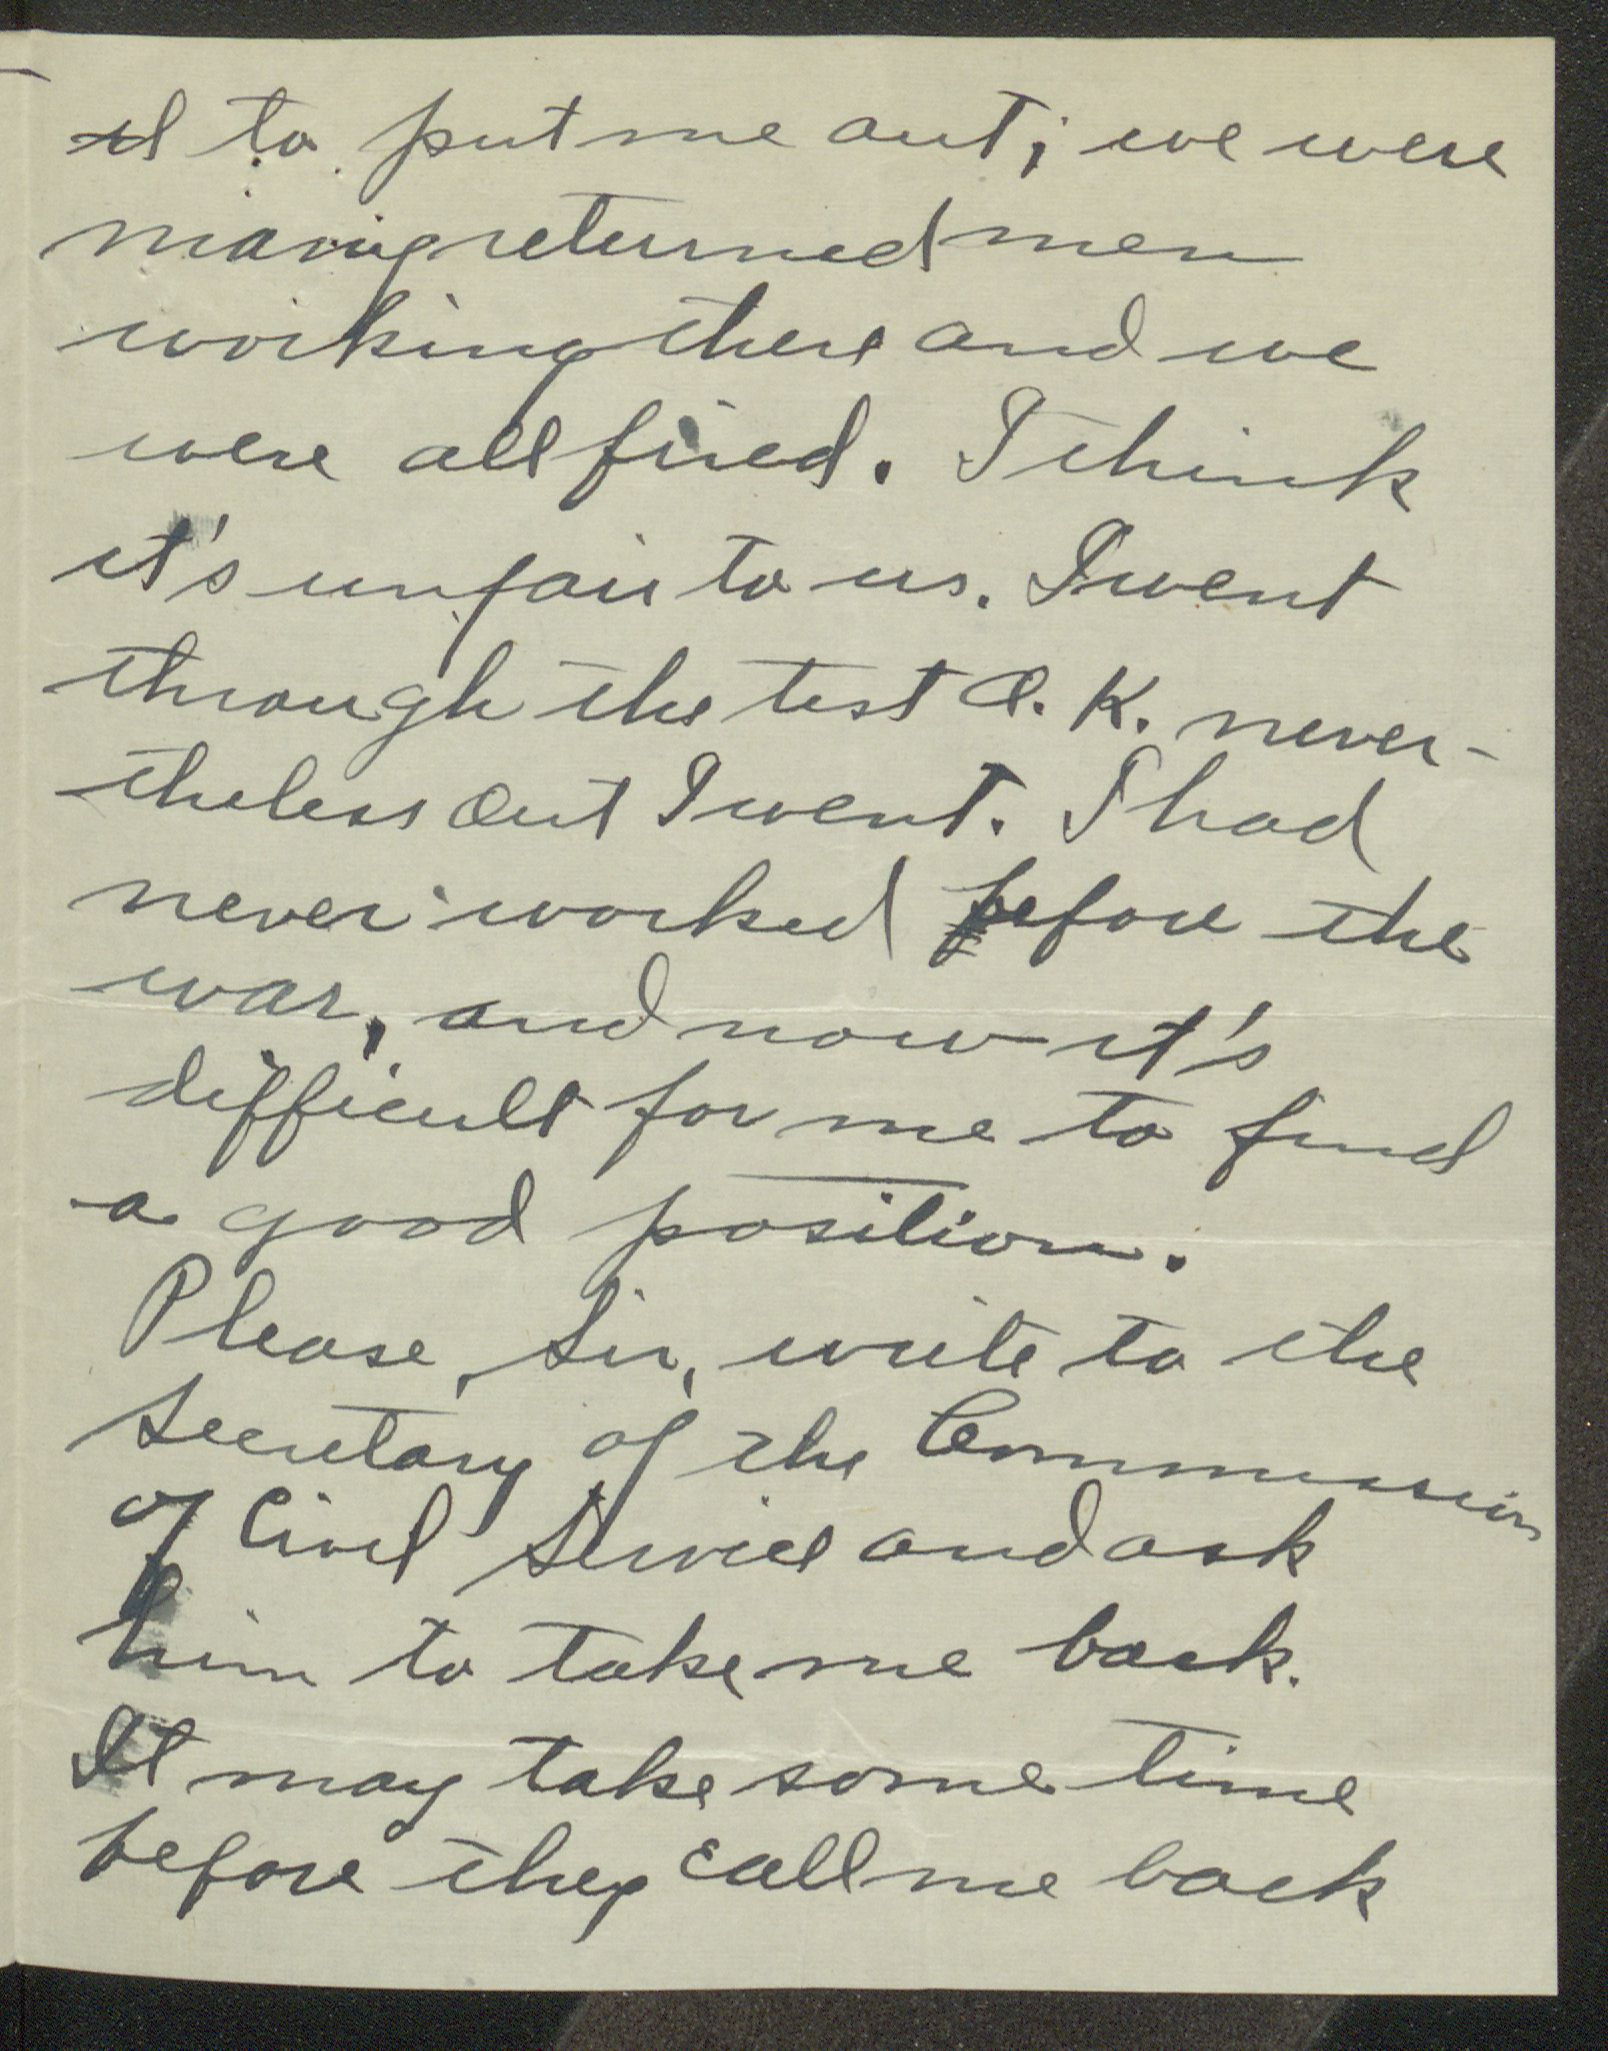 ed to put me out; we were
many returned men
working there and we
were all fired. I think
it's unfair to us. I went
through the test O.K. never-
theless out I went. I had
never worked before the
war, and now it's
difficult for me to find
a good position.
Please, Sir, write to the
Secretary of the Commission
of Civil Service and ask
him to take me back.
It may take some time
before they call me back